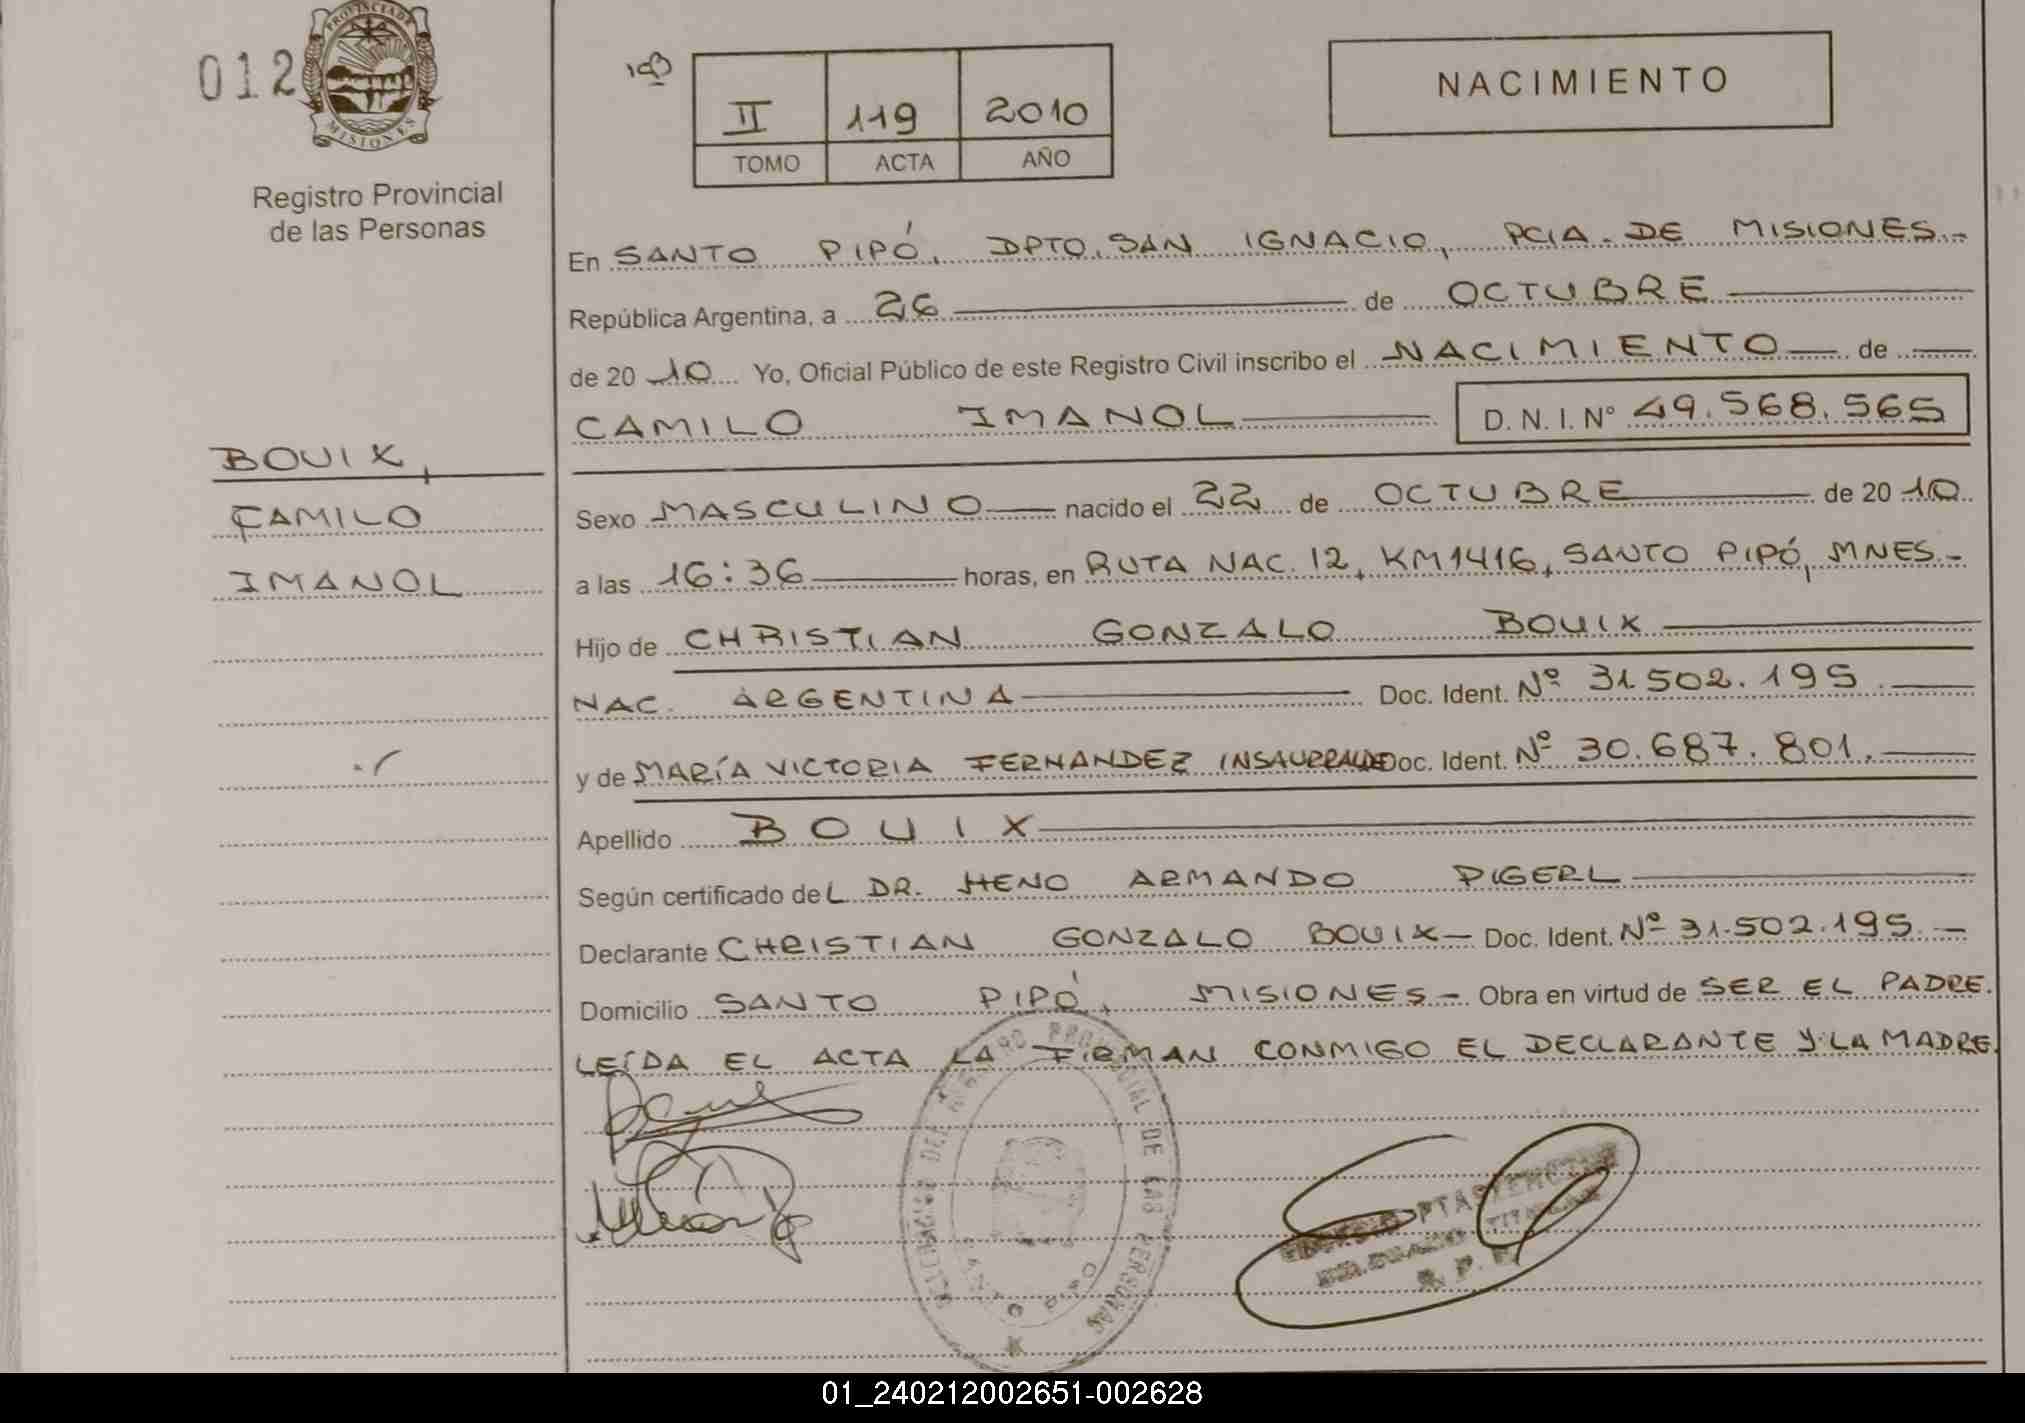 012
PROVINCIA DE
MISIONES
Registro Provincial
de las Personas
II 119 2010
TOMO ACTA AÑO
NACIMIENTO
En SANTO PIPÓ, DPTO. SAN IGNACIO, PCIA. DE MISIONES.-
República Argentina, a 26 de OCTUBRE
de 20 10 Yo, Oficial Público de este Registro Civil inscribo el NACIMIENTO de
CAMILO IMANOL D.N.I. Nº 49.568.565
BOUIX,
CAMILO
IMANOL
Sexo MASCULINO nacido el 22 de OCTUBRE de 20 10
a las 16:36 horas, en RUTA NAC. 12, KM 1416, SANTO PIPÓ, MNES.-
Hijo de CHRISTIAN GONZALO BOUIX
NAC. ARGENTINA Doc. Ident. Nº 31.502.195
y de MARÍA VICTORIA FERNANDEZ INSAURRALDE Doc. Ident. Nº 30.687.801.
Apellido BOUIX
Según certificado del DR. HENO ARMANDO PIGERL
Declarante CHRISTIAN GONZALO BOUIX - Doc. Ident. Nº 31.502.195.-
Domicilio SANTO PIPÓ, MISIONES - Obra en virtud de SER EL PADRE.
LEÍDA EL ACTA LA FIRMAN CONMIGO EL DECLARANTE Y LA MADRE.
PROVINCIAL DE LAS PERSONAS
01_240212002651-002628